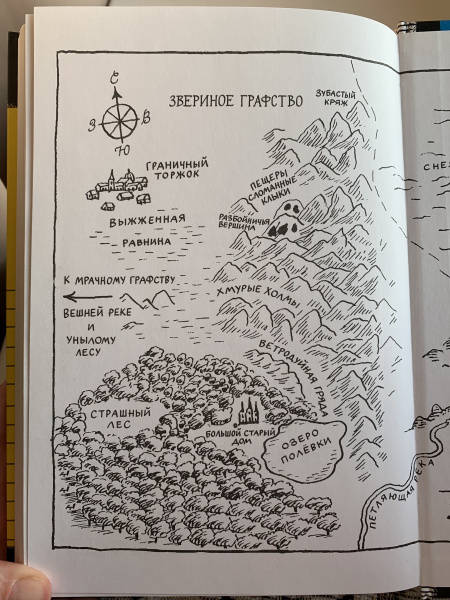 С
З
В
Ю
ЗВЕРИНОЕ ГРАФСТВО
ЗУБАСТЫЙ
КРЯЖ
ГРАНИЧНЫЙ
ТОРЖОК
ПЕЩЕРЫ
СЛОМАННЫЕ
КЛЫКИ
ВЫЖЖЕННАЯ
РАВНИНА
РАЗБОЙНИЧЬЯ
ВЕРШИНА
К МРАЧНОМУ ГРАФСТВУ
ВЕШНЕЙ РЕКЕ
И
УНЫЛОМУ
ЛЕСУ
ХМУРЫЕ ХОЛМЫ
ВЕТРОДУЙНАЯ ГРЯДА
СТРАШНЫЙ
ЛЕС
БОЛЬШОЙ СТАРЫЙ
ДОМ
ОЗЕРО
ПОЛЕВКИ
ПЕТЛЯЮЩАЯ РЕКА
СНЕ